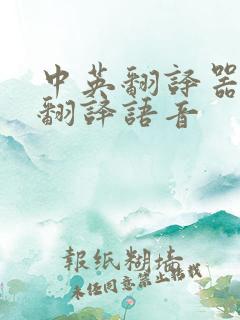 中英翻譯器
翻譯語音
報紙糊墻
未任同意禁止轉載